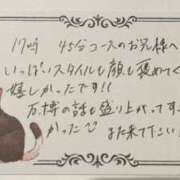 17時 45分コースのお兄様へ
いっぱいスタイルも顔も褒めてくれて
嬉しかったです!!
万博の話も盛り上がってすごく楽し
かった☺ また来て下さい!